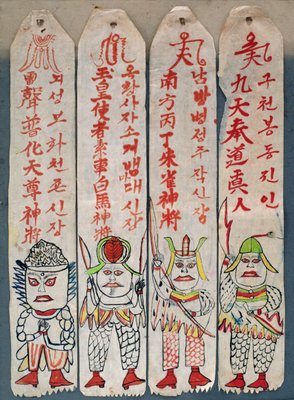 구천봉동진인
九天奉道真人
남방병정주작신장
南方丙丁朱雀神將
옥황사자소거 신장
玉皇使者素車白馬神將
뇌성보화천존신장
雷聲普化天尊神將